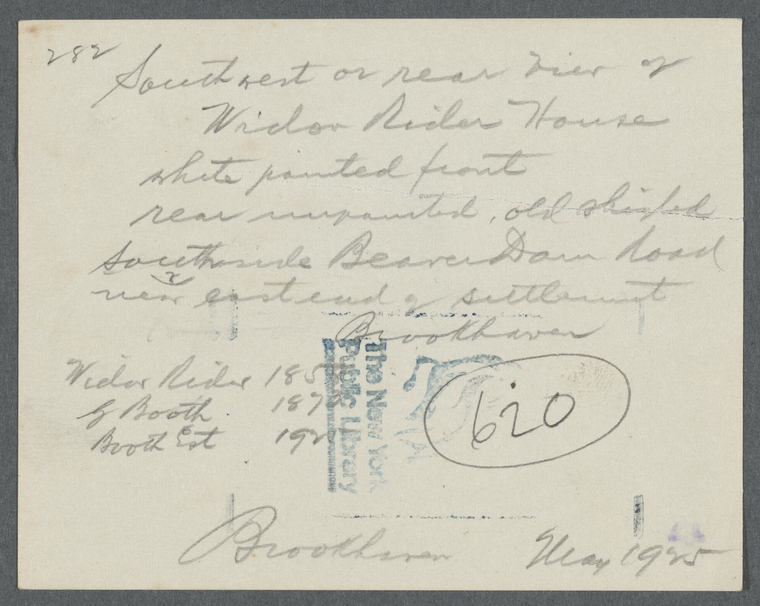 282
Southwest or rear view of
Widow Rider House
white painted front
rear unpainted, old shingled
Southside Beaver Dam Road
near east end of settlement
Brookhaven
Widow Rider 185
G Booth 187
Booth Est 192
The New York
Public Library
620
Brookhaven May 1925